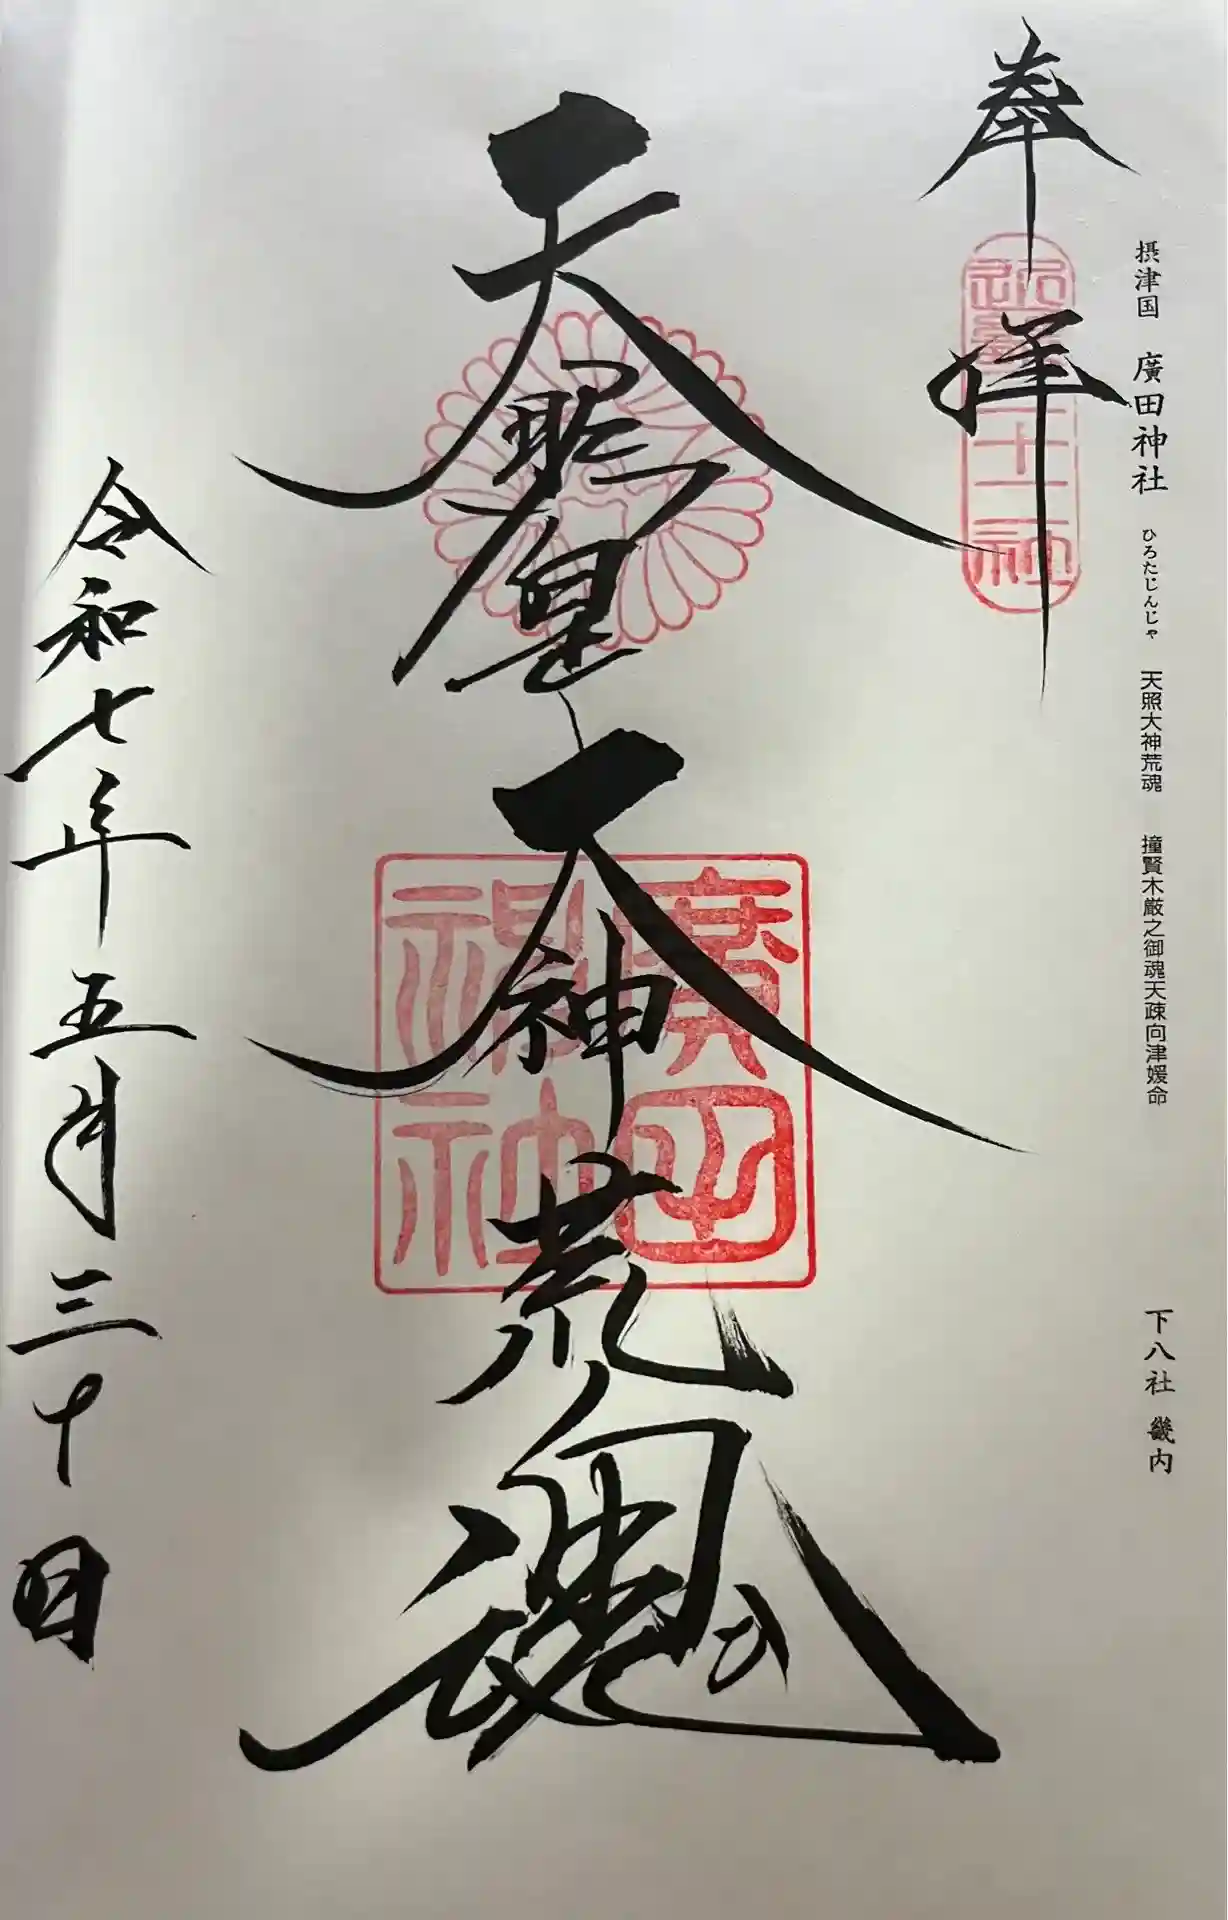 摂津国 廣田神社 ひろたじんじゃ 天照大神荒魂 撞賢木厳之御魂天疎向津媛命 下八社 畿内
奉拝
二十二社
天照皇大神荒魂
廣田神社
令和七年五月三十日